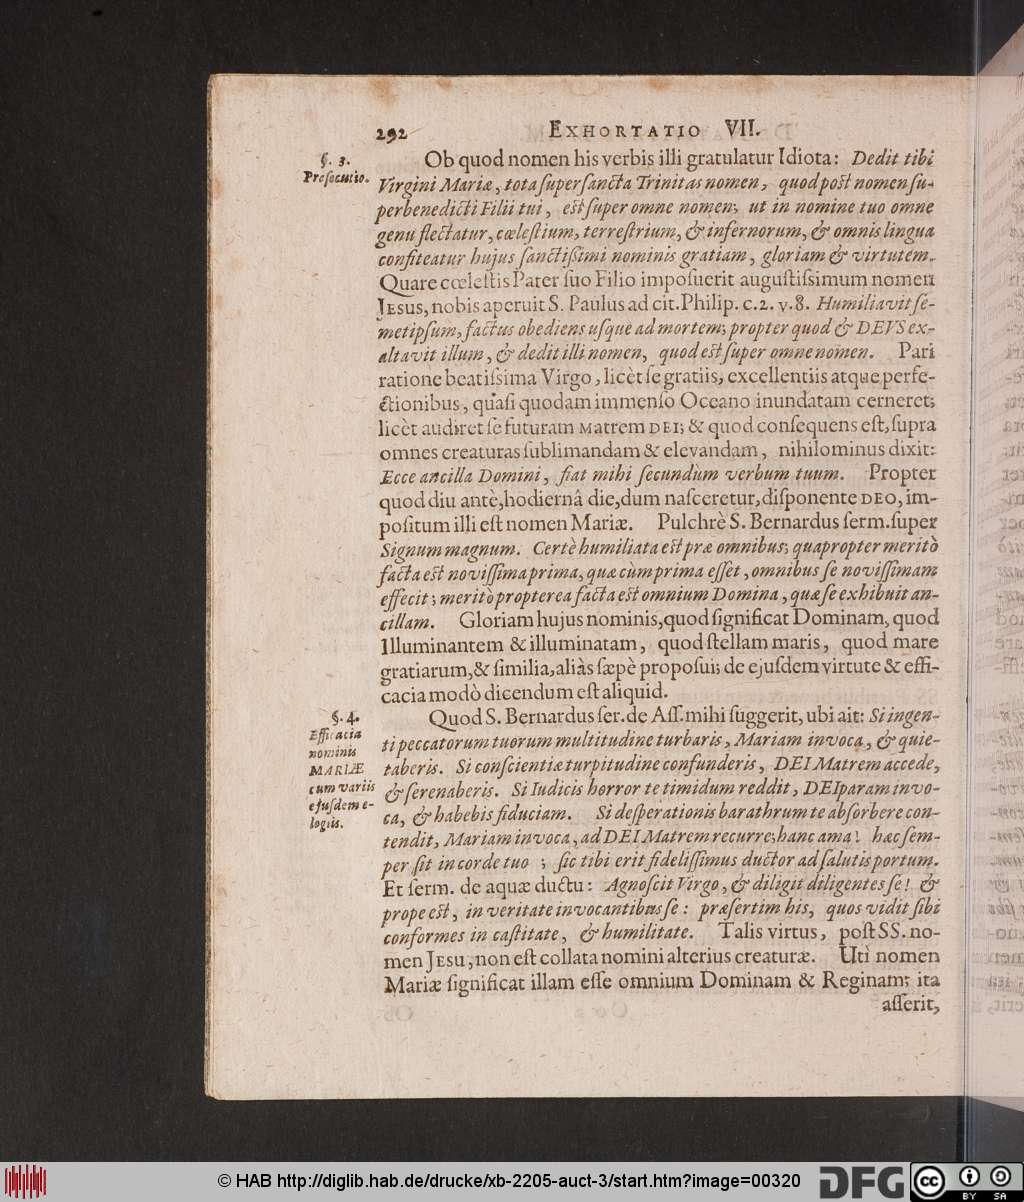 292 EXHORTATIO VII.
§. 3.
Prosecutio.
Ob quod nomen his verbis illi gratulatur Idiota: Dedit tibi
Virgini Mariæ, tota supersancta Trinitas nomen, quod post nomen su-
perbenedicti Filii tui, est super omne nomen; ut in nomine tuo omne
genu flectatur, cœlestium, terrestrium, & infernorum, & omnis lingua
confiteatur hujus sanctissimi nominis gratiam, gloriam & virtutem.
Quare cœlestis Pater suo Filio imposuerit augustissimum nomen
JESUS, nobis aperuit S. Paulus ad cit. Philip. c. 2. v. 8. Humiliavit se-
metipsum, factus obediens usque ad mortem; propter quod & DEVS ex-
altavit illum, & dedit illi nomen, quod est super omne nomen. Pari
ratione beatissima Virgo, licèt se gratiis, excellentiis atque perfe-
ctionibus, quasi quodam immenso Oceano inundatam cerneret;
licèt audiret se futuram MATREM DEI; & quod consequens est, supra
omnes creaturas sublimandam & elevandam, nihilominus dixit:
Ecce ancilla Domini, fiat mihi secundùm verbum tuum. Propter
quod diu antè, hodiernâ die, dum nasceretur, disponente DEO, im-
positum illi est nomen Mariæ. Pulchrè S. Bernardus serm. super
Signum magnum. Certè humiliata est præ omnibus; quapropter meritò
facta est novissima prima, quæ cùm prima esset, omnibus se novissimam
effecit; meritò propterea facta est omnium Domina, quæ se exhibuit an-
cillam. Gloriam hujus nominis, quod significat Dominam, quod
Illuminantem & illuminatam, quod stellam maris, quod mare
gratiarum, & similia, aliàs sæpè proposui; de ejusdem virtute & effi-
cacia modò dicendum est aliquid.
§. 4.
Efficacia
nominis
MARIÆ
cum variis
ejusdem e-
logiis.
Quod S. Bernardus ser. de Ass. mihi suggerit, ubi ait: Si ingen-
ti peccatorum tuorum multitudine turbaris, Mariam invoca, & quie-
taberis. Si conscientiæ turpitudine confunderis, DEI Matrem accede,
& serenaberis. Si Iudicis horror te timidum reddit, DEIparam invo-
ca, & habebis fiduciam. Si desperationis barathrum te absorbere con-
tendit, Mariam invoca, ad DEI Matrem recurre; hanc ama! hæc sem-
per sit in corde tuo ; sic tibi erit fidelissimus ductor ad salutis portum.
Et serm. de aquæ ductu: Agnoscit Virgo, & diligit diligentes se! &
prope est, in veritate invocantibus se: præsertim his, quos vidit sibi
conformes in castitate, & humilitate. Talis virtus, post SS. no-
men JESU, non est collata nomini alterius creaturæ. Utì nomen
Mariæ significat illam esse omnium Dominam & Reginam; ita
asserit,
© HAB http://diglib.hab.de/drucke/xb-2205-auct-3/start.htm?image=00320
DFG
cc
BY SA